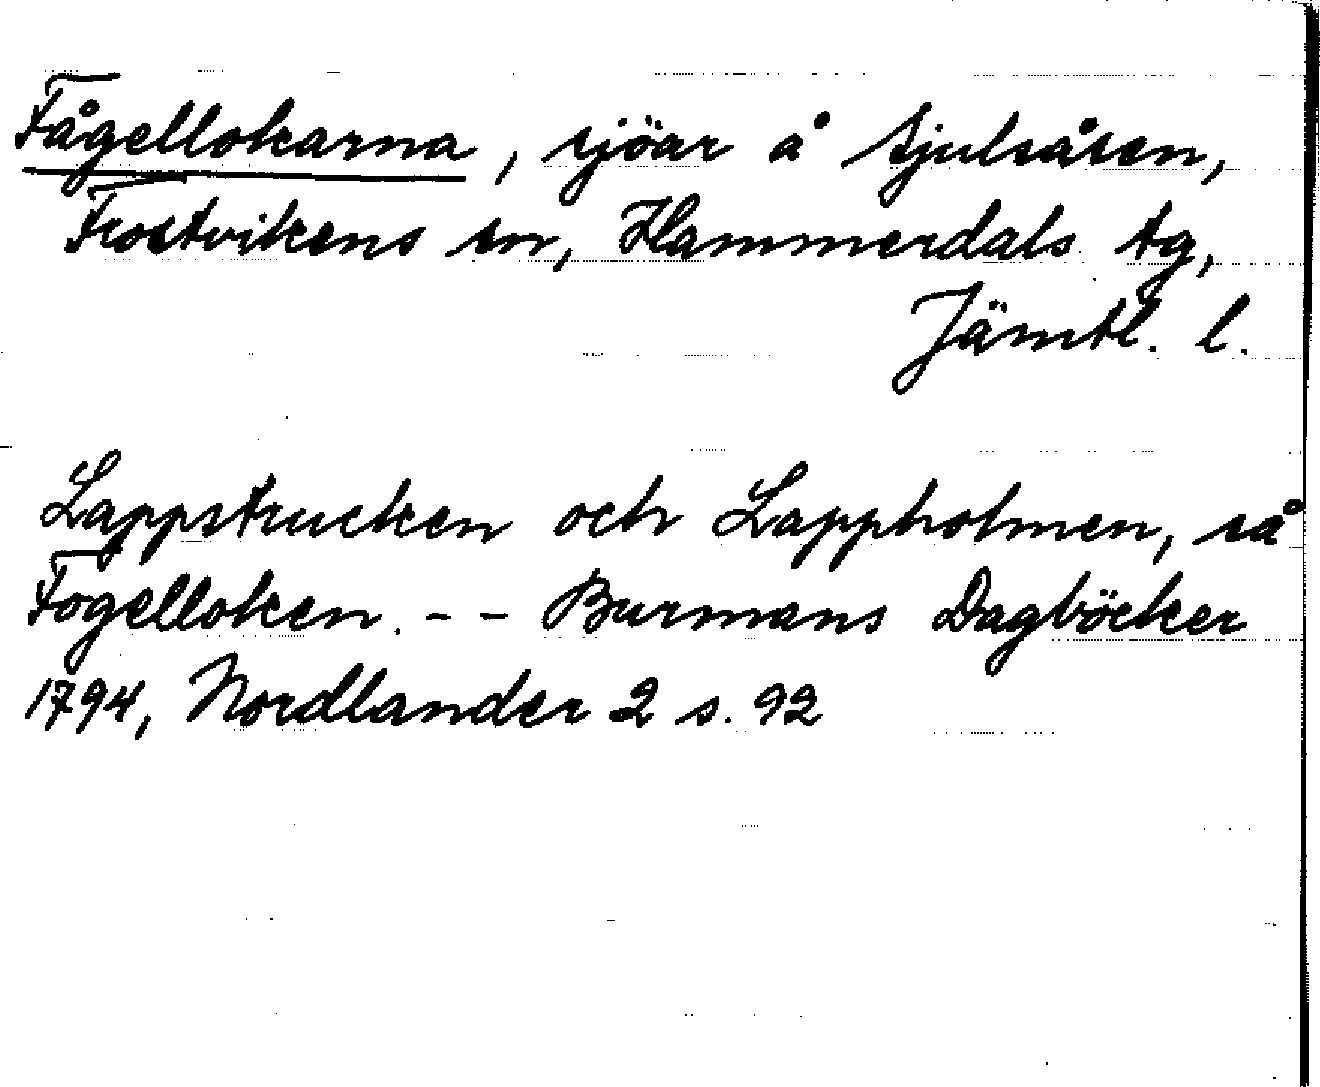 Fågellokarna, sjöar å Sjulsåsen,
Frostvikens sn, Hammerdals tg,
Jämtl. l.
Lappstrucken och Lappholmen, så
Fogelloken. - - Burmans Dagböcker
1794, Nordlander 2 s. 92